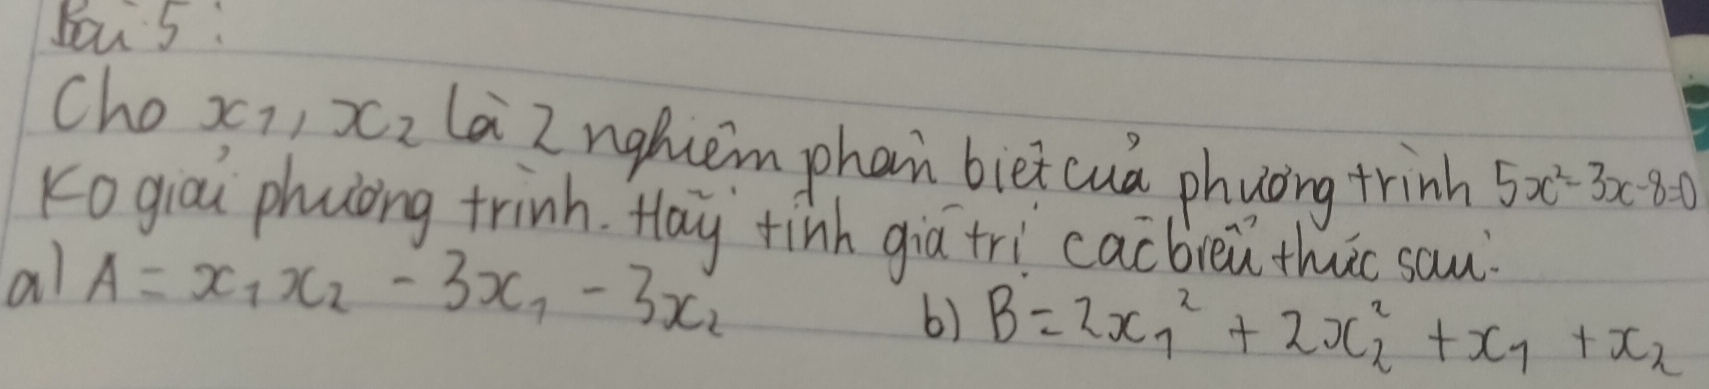 Bài 5:
Cho x₁, x₂ là 2 nghiệm phân biệt của phương trình 5x²-3x-8=0
Ko giải phương trình. Hãy tính giá trị các biểu thức sau:
a) A = x₁x₂ - 3x₁ - 3x₂ b) B = 2x₁² + 2x₂² + x₁ + x₂